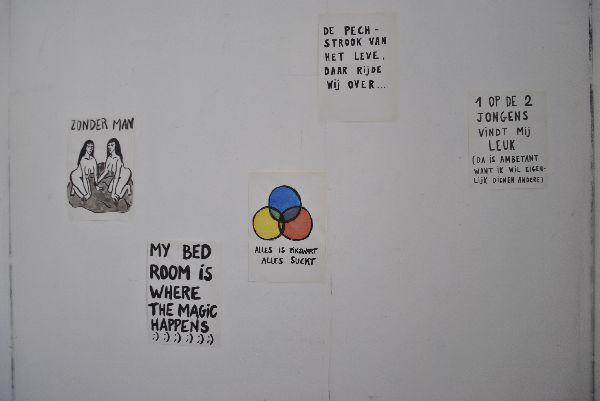 DE PECH-
STROOK VAN
HET LEVE,
DAAR RijDE
Wij OVER...
1 OP DE 2
JONGENS
ViNDT Mij
LEUK
(DA iS AMBETANT
WANT iK WiL EIGEN-
LijK DIENEN ANDERE)
ZONDER MAN
ALLES IS PIKZWART
ALLES SUCKT
MY BED
ROOM iS
WHERE
THE MAGiC
HAPPENS
;) ;) ;) ;) ;) ;)